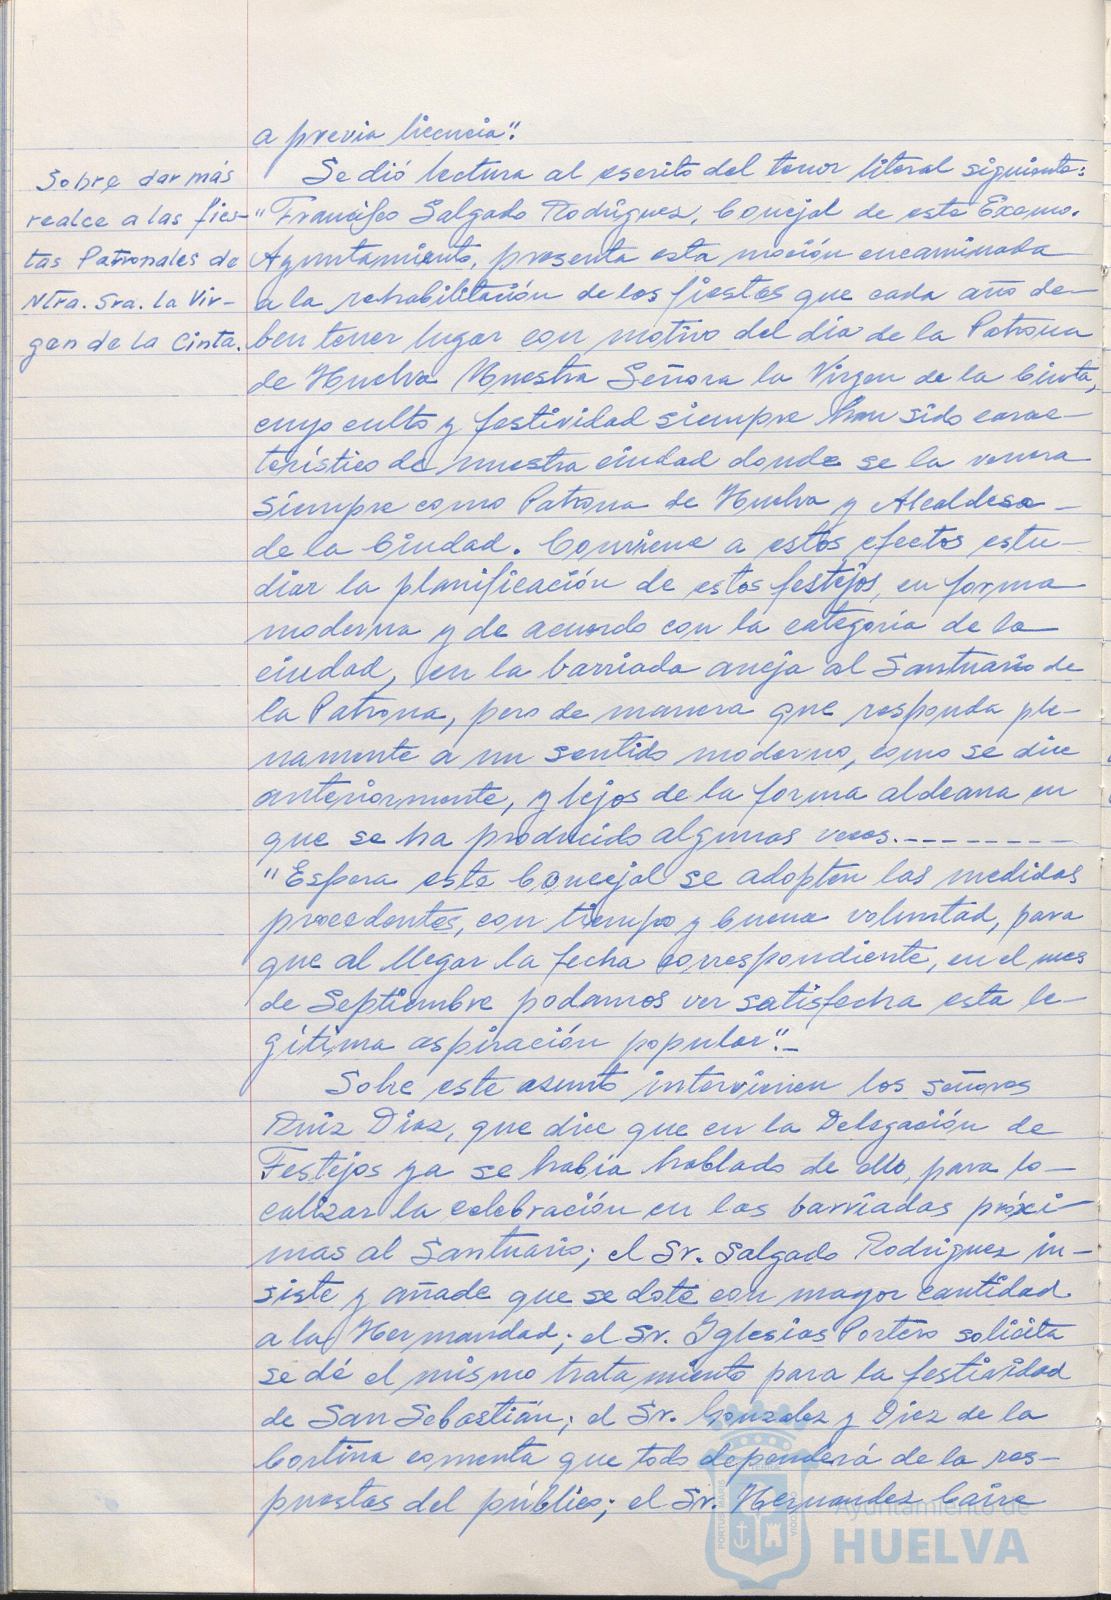 a previa licencia".
Sobre dar más
realce a las fies-
tas Patronales de
Ntra. Sra. la Vir-
gen de la Cinta.
Se dió lectura al escrito del tenor literal siguiente:
"Francisco Salgado Rodríguez, Concejal de este Excmo.
Ayuntamiento, presenta esta moción encaminada
a la rehabilitación de las fiestas que cada año de-
ben tener lugar con motivo del día de la Patrona
de Huelva Nuestra Señora la Virgen de la Cinta,
cuyo culto y festividad siempre han sido carac-
terístico de nuestra ciudad donde se la venera
siempre como Patrona de Huelva y Alcaldesa
de la Ciudad. Conviene a estos efectos estu-
diar la planificación de estos festejos, en forma
moderna y de acuerdo con la categoría de la
ciudad, en la barriada aneja al Santuario de
la Patrona, pero de manera que responda ple-
namente a un sentido moderno, como se dice
anteriormente, y lejos de la forma aldeana en
que se ha producido algunas veces.---------
"Espera este Concejal se adopten las medidas
procedentes, con tiempo y buena voluntad, para
que al llegar la fecha correspondiente, en el mes
de Septiembre podamos ver satisfecha esta le-
gítima aspiración popular".-
Sobre este asunto intervienen los señores
Ruiz Díaz, que dice que en la Delegación de
Festejos ya se había hablado de ello, para lo-
calizar la celebración en las barriadas próxi-
mas al Santuario; el Sr. Salgado Rodríguez in-
siste y añade que se dote con mayor cantidad
a la Hermandad; el Sr. Iglesias Portero solicita
se dé el mismo tratamiento para la festividad
de San Sebastián; el Sr. González y Díez de la
Cortina comenta que todo dependerá de la res-
puestas del público; el Sr. Hernandez Caire
Ayuntamiento de
HUELVA